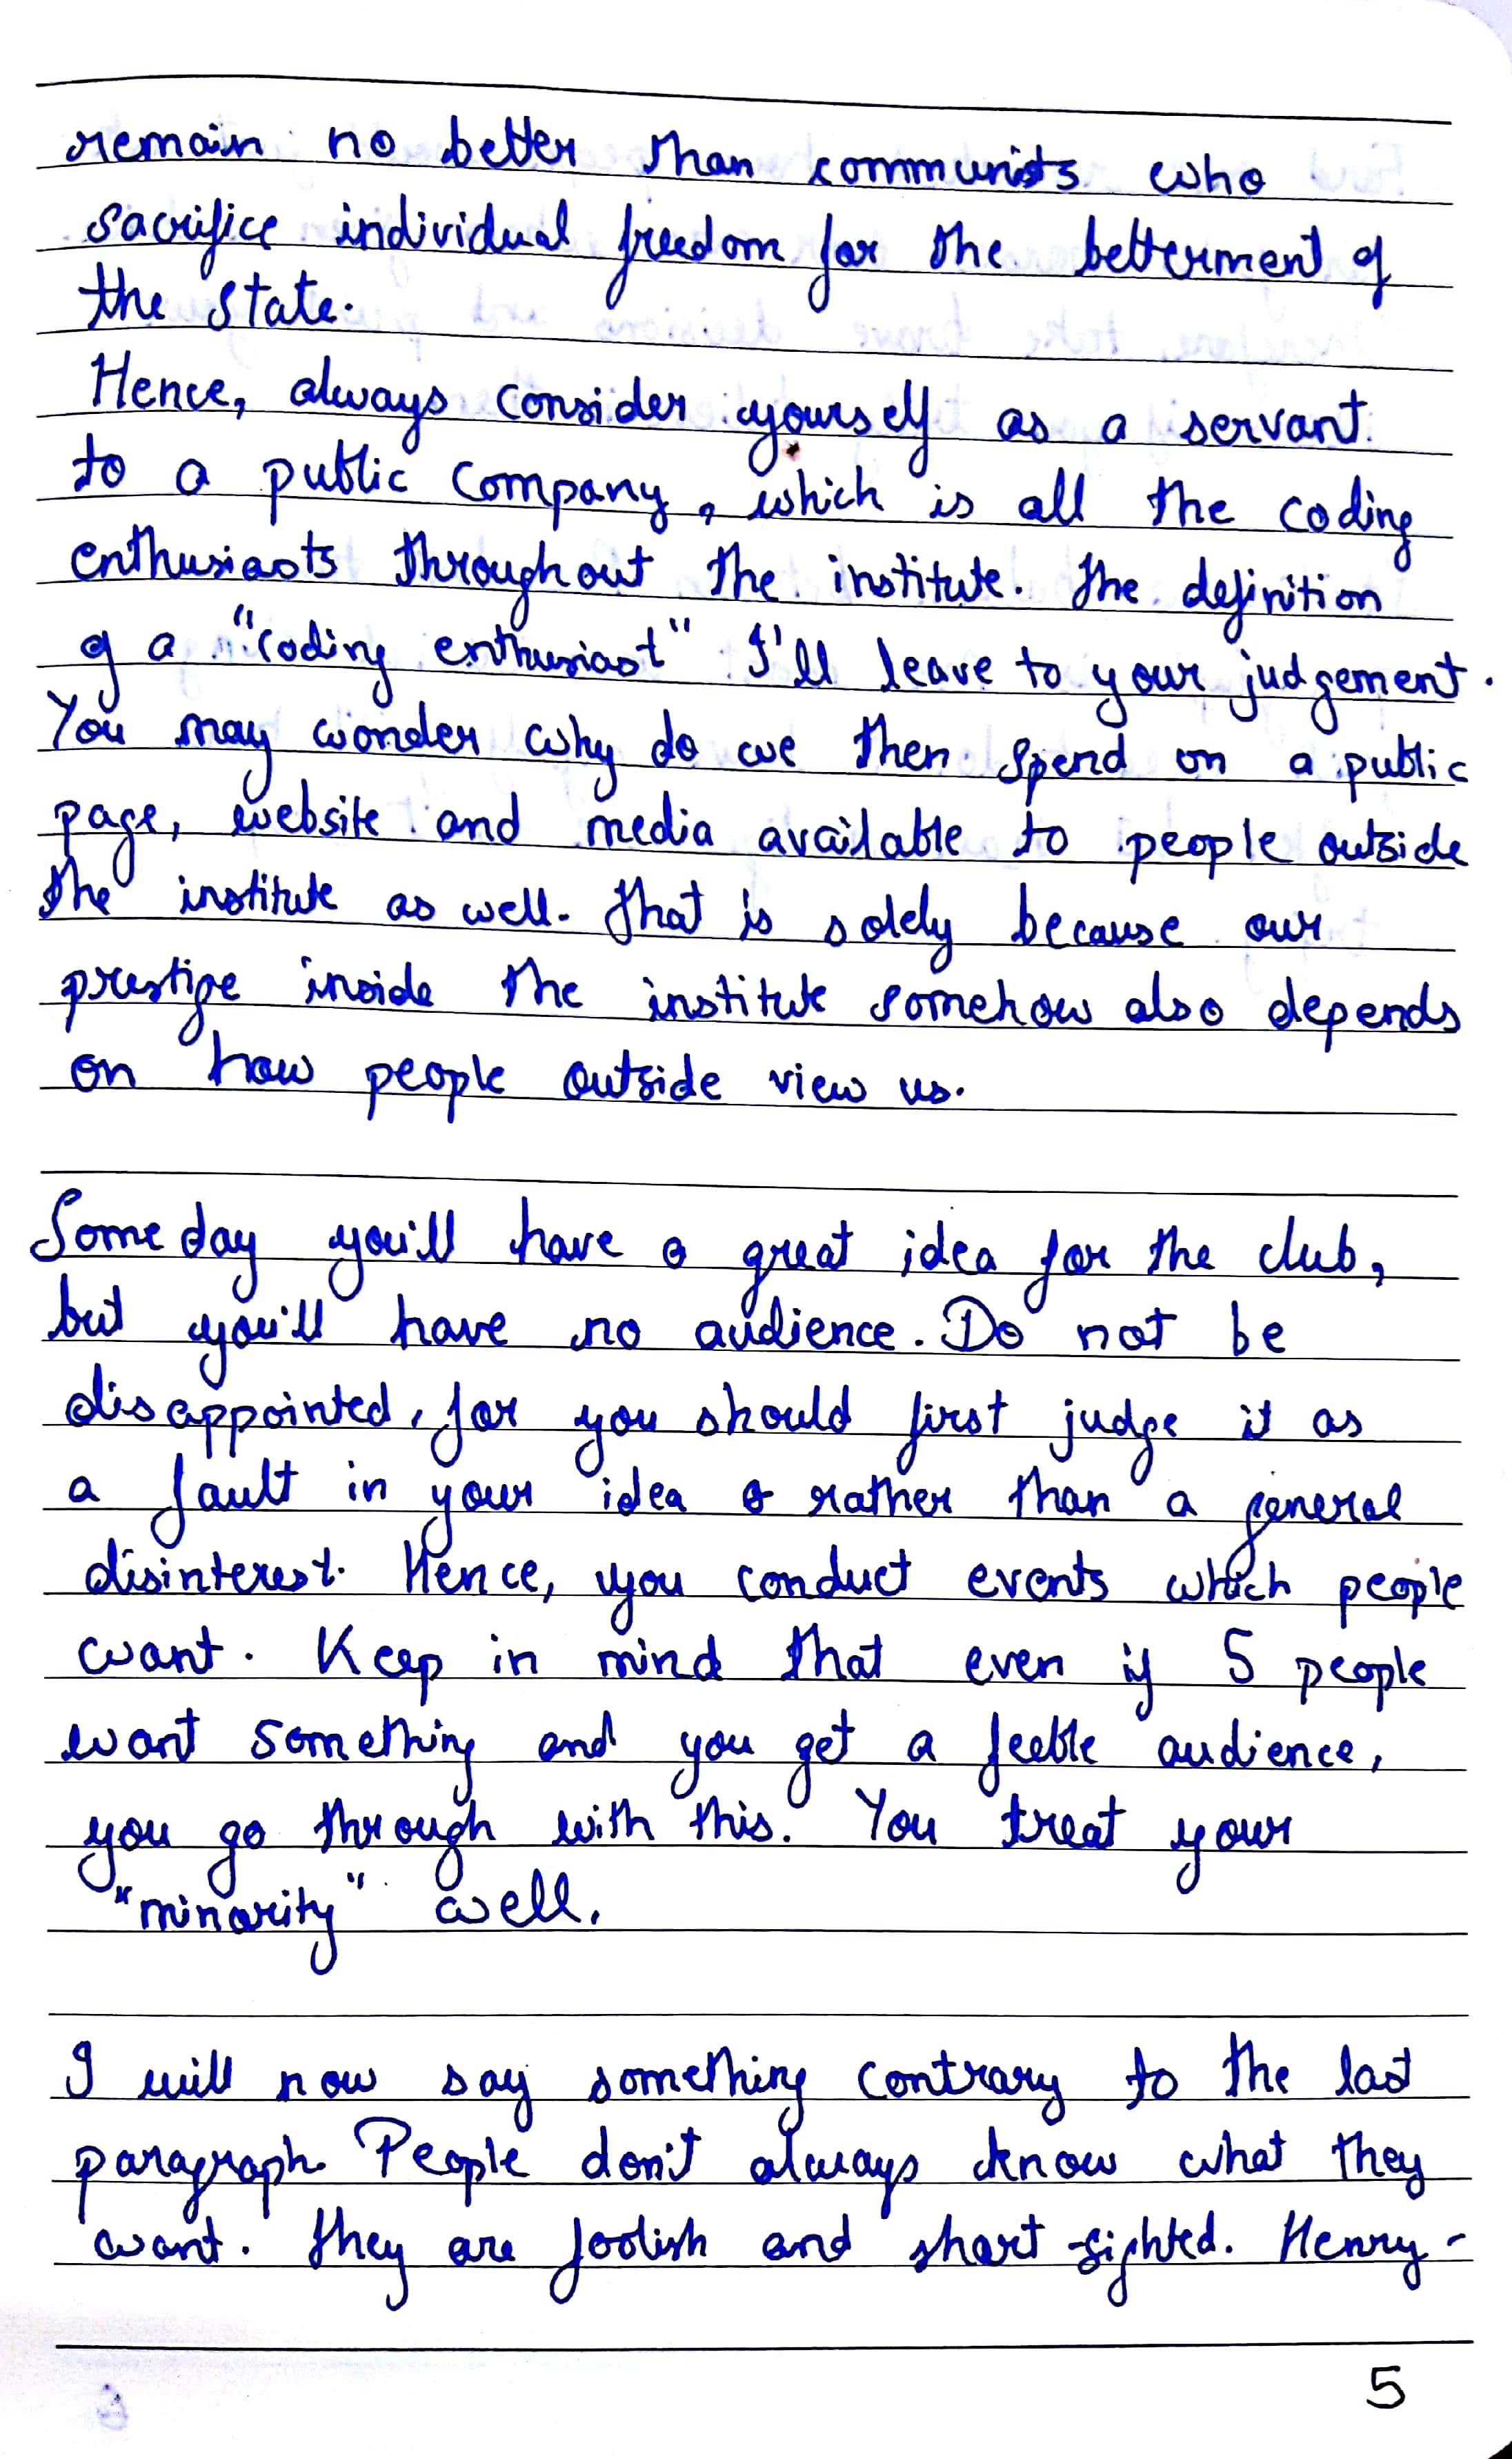 remain no better than communists who
sacrifice individual freedom for the betterment of
the state.
Hence, always consider yourself as a servant
to a public company, which is all the coding
enthusiasts throughout the institute. The definition
of a "coding enthusiast" I'll leave to your judgement.
You may wonder why do we then spend on a public
page, website and media available to people outside
the institute as well. That is solely because our
prestige inside the institute somehow also depends
on how people outside view us.
Some day you'll have a great idea for the club,
but you'll have no audience. Do not be
disappointed, for you should first judge it as
a fault in your idea rather than a general
disinterest. Hence, you conduct events which people
want. Keep in mind that even if 5 people
want something and you get a feeble audience,
you go through with this. You treat your
"minority" well.
I will now say something contrary to the last
paragraph. People don't always know what they
want. They are foolish and short-sighted. Henry-
5